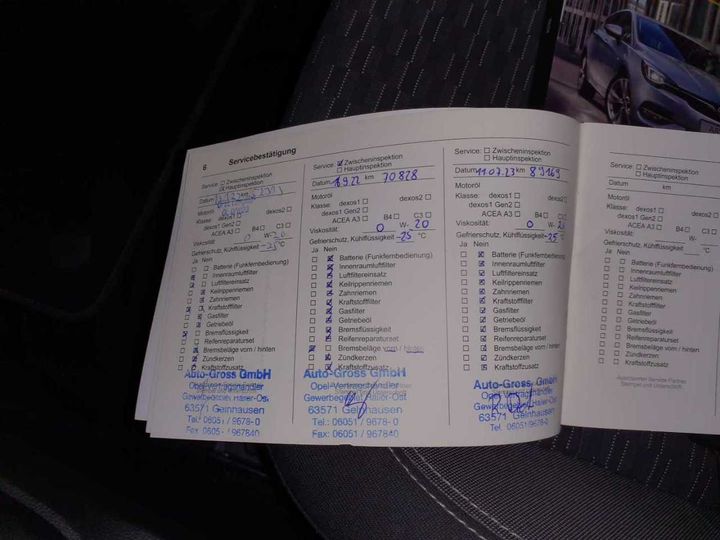 6 Servicebestätigung
Service: Zwischeninspektion
Hauptinspektion
Datum km
Motoröl
Klasse: dexos1 dexos2
dexos1 Gen2
ACEA A3 B4 C3
Viskosität: 0 W- 20
Gefrierschutz, Kühlflüssigkeit -25 °C
Ja Nein
Batterie (Funkfernbedienung)
Innenraumluftfilter
Luftfiltereinsatz
Keilrippenriemen
Zahnriemen
Kraftstofffilter
Gasfilter
Getriebeöl
Bremsflüssigkeit
Reifenreparaturset
Bremsbeläge vorn / hinten
Zündkerzen
Kraftstoffzusatz
Auto-Gross GmbH
Opel-Vertragshändler
Gewerbegebiet Hailer-Ost
63571 Gelnhausen
Tel.: 06051 / 9678-0
Fax: 06051 / 967840
Service: Zwischeninspektion
Hauptinspektion
Datum 22 km 70828
Motoröl
Klasse: dexos1 dexos2
dexos1 Gen2
ACEA A3 B4 C3
Viskosität: 0 W- 20
Gefrierschutz, Kühlflüssigkeit -25 °C
Ja Nein
Batterie (Funkfernbedienung)
Innenraumluftfilter
Luftfiltereinsatz
Keilrippenriemen
Zahnriemen
Kraftstofffilter
Gasfilter
Getriebeöl
Bremsflüssigkeit
Reifenreparaturset
Bremsbeläge vorn / hinten
Zündkerzen
Kraftstoffzusatz
Auto-Gross GmbH
Opel-Vertragshändler
Gewerbegebiet Hailer-Ost
63571 Gelnhausen
Tel.: 06051 / 9678-0
Fax: 06051 / 967840
Service: Zwischeninspektion
Hauptinspektion
Datum 11.07.23 km 89169
Motoröl
Klasse: dexos1 dexos2
dexos1 Gen2
ACEA A3 B4 C3
Viskosität: 0 W- 20
Gefrierschutz, Kühlflüssigkeit -25 °C
Ja Nein
Batterie (Funkfernbedienung)
Innenraumluftfilter
Luftfiltereinsatz
Keilrippenriemen
Zahnriemen
Kraftstofffilter
Gasfilter
Getriebeöl
Bremsflüssigkeit
Reifenreparaturset
Bremsbeläge vorn / hinten
Zündkerzen
Kraftstoffzusatz
Auto-Gross GmbH
Opel-Vertragshändler
Gewerbegebiet Hailer-Ost
63571 Gelnhausen
Tel.: 06051 / 9678-0
Service: Zwischeninspektion
Hauptinspektion
Datum km
Motoröl
Klasse: dexos1
dexos1 Gen2
ACEA A3
Viskosität:
Gefrierschutz, Kühlflüssigkeit
Ja Nein
Batterie (Funkfernbedienung)
Innenraumluftfilter
Luftfiltereinsatz
Keilrippenriemen
Zahnriemen
Kraftstofffilter
Gasfilter
Getriebeöl
Bremsflüssigkeit
Reifenreparaturset
Bremsbeläge vorn / hinten
Zündkerzen
Kraftstoffzusatz
Autorisierter Service Partner
Stempel und Unterschrift